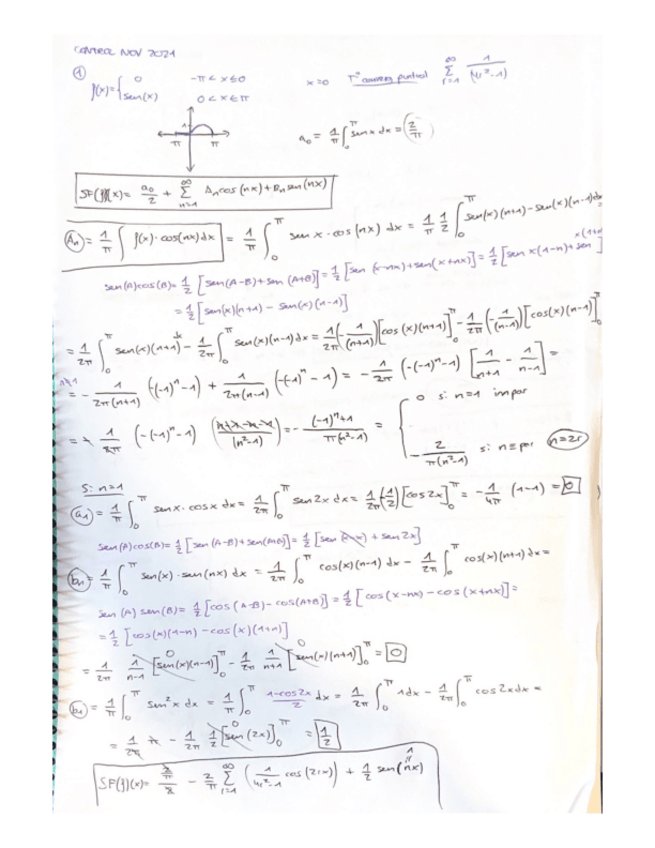 CONTROL NOV 2021
① f(x)= { 0 -π < x ≤ 0
sen(x) 0 < x ≤ π
x=0 Tª converg puntual ∑_{r=1}^{∞} 1/(4r²-1)
-π π
a₀ = 1/π ∫₀^π sen x dx = 2/π
SF(f)(x) = a₀/2 + ∑_{n=1}^{∞} An cos(nx) + Bn sen(nx)
An = 1/π ∫ f(x)·cos(nx)dx = 1/π ∫₀^π sen x · cos(nx) dx = 1/π 1/2 ∫₀^π sen(x)(n+1) - sen(x)(n-1)dx
sen(A)cos(B) = 1/2 [sen(A-B) + sen(A+B)] = 1/2 [sen(x-nx) + sen(x+nx)] = 1/2 [sen x(1-n) + sen x(1+n)]
= 1/2 [sen(x)(n+1) - sen(x)(n-1)]
= 1/2π ∫₀^π sen(x)(n+1)dx - 1/2π ∫₀^π sen(x)(n-1)dx = 1/2π (-1/(n+1)) [cos(x)(n+1)]₀^π - 1/2π (-1/(n-1)) [cos(x)(n-1)]₀^π
n≠1 = - 1/2π(n+1) (-(-1)ⁿ-1) + 1/2π(n-1) (-(-1)ⁿ-1) = - 1/2π (-(-1)ⁿ-1) [1/(n+1) - 1/(n-1)] =
= 1/2π (-(-1)ⁿ-1) (n+1-n-1)/(n²-1) = - ((-1)ⁿ+1)/(π(n²-1)) = { 0 si n=1 impar
- 2/(π(n²-1)) si n=par n=2r
Si n=1
a₁ = 1/π ∫₀^π sen x · cos x dx = 1/2π ∫₀^π sen 2x dx = 1/2π (-1/2) [cos 2x]₀^π = - 1/4π (1-1) = 0
sen(A)cos(B) = 1/2 [sen(A-B) + sen(A+B)] = 1/2 [sen(x-x) + sen 2x]
bn = 1/π ∫₀^π sen(x) · sen(nx) dx = 1/2π ∫₀^π cos(x)(n-1)dx - 1/2π ∫₀^π cos(x)(n+1)dx =
sen(A) sen(B) = 1/2 [cos(A-B) - cos(A+B)] = 1/2 [cos(x-nx) - cos(x+nx)] =
= 1/2 [cos(x)(1-n) - cos(x)(1+n)]
= 1/2π 1/(n-1) [sen(x)(n-1)]₀^π - 1/2π 1/(n+1) [sen(x)(n+1)]₀^π = 0
b₁ = 1/π ∫₀^π sen² x dx = 1/π ∫₀^π (1-cos 2x)/2 dx = 1/2π ∫₀^π 1dx - 1/2π ∫₀^π cos 2x dx =
= 1/2π π - 1/2π 1/2 [sen(2x)]₀^π = 1/2
SF(f)(x) = (2/π)/2 - 2/π ∑_{r=1}^{∞} (1/(4r²-1) cos(2rx)) + 1/2 sen(nx)